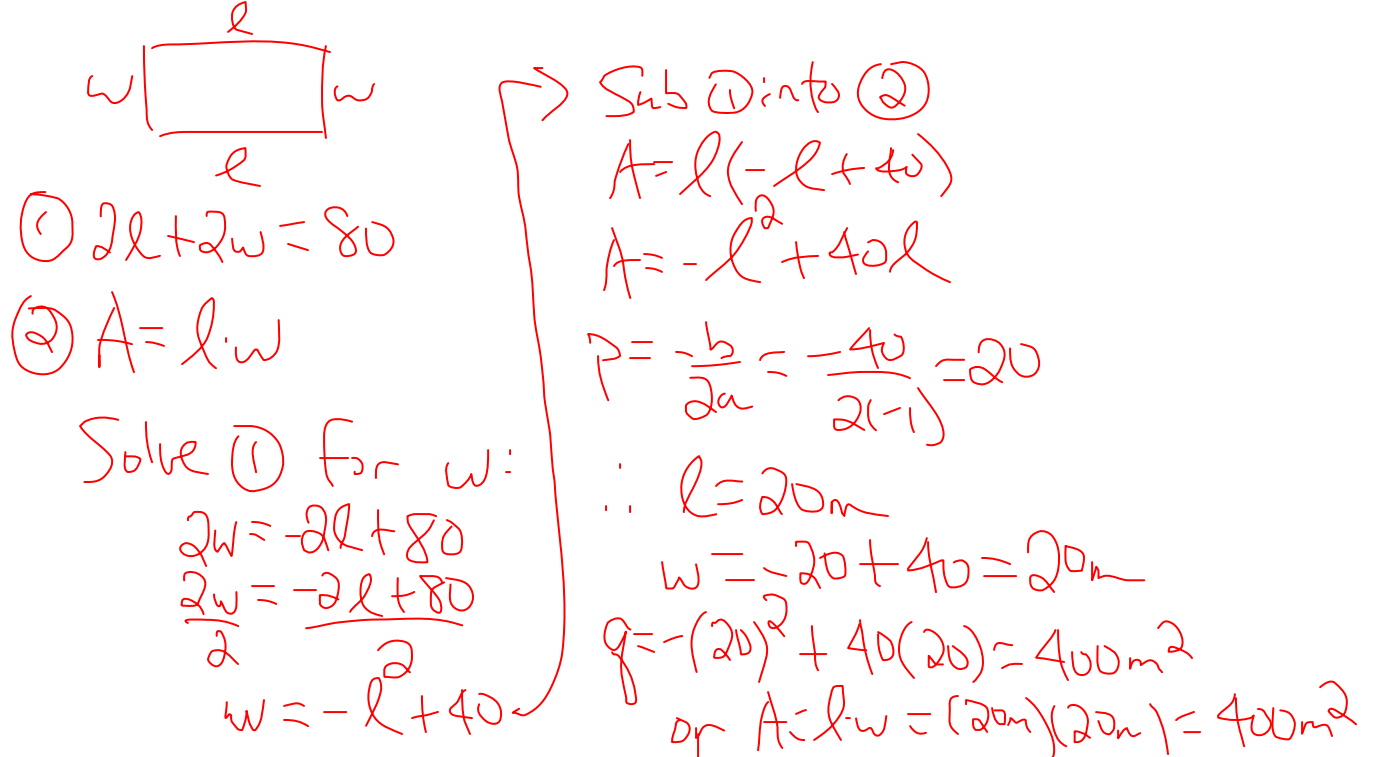 l
w w
l
① 2l+2w=80
② A=l·w
Solve ① for w:
2w=-2l+80
2w/2=(-2l+80)/2
w=-l+40
Sub ① into ②
A=l(-l+40)
A=-l²+40l
p=-b/2a=-40/2(-1)=20
∴ l=20m
w=-20+40=20m
q=-(20)²+40(20)=400m²
or A=l·w=(20m)(20m)=400m²